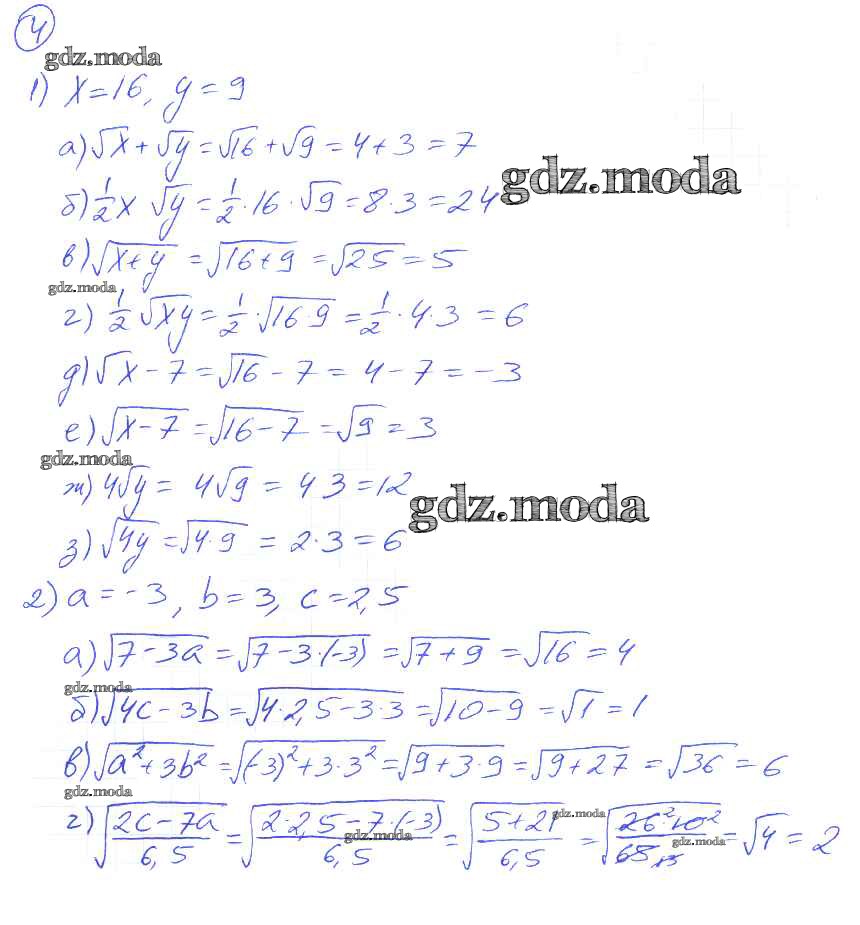 4
gdz.moda
1) x=16, y=9
а) √x + √y = √16 + √9 = 4+3 = 7
gdz.moda
б) 1/2 x √y = 1/2 · 16 · √9 = 8·3 = 24
в) √(x+y) = √(16+9) = √25 = 5
gdz.moda
г) 1/2 √(xy) = 1/2 · √(16·9) = 1/2 · 4·3 = 6
д) √x - 7 = √16 - 7 = 4-7 = -3
е) √(x-7) = √(16-7) = √9 = 3
gdz.moda
ж) 4√y = 4√9 = 4 3 = 12
gdz.moda
з) √(4y) = √(4·9) = 2·3 = 6
2) a = -3, b = 3, c = 2,5
а) √(7-3a) = √(7-3·(-3)) = √(7+9) = √16 = 4
gdz.moda
б) √(4c-3b) = √(4·2,5-3·3) = √(10-9) = √1 = 1
в) √(a²+3b²) = √((-3)²+3·3²) = √(9+3·9) = √(9+27) = √36 = 6
gdz.moda
г) √((2c-7a)/6,5) = √((2·2,5-7·(-3))/6,5) = √((5+21)/6,5) = √((26²·10²)/65 13) = √4 = 2
gdz.moda
gdz.moda
gdz.moda